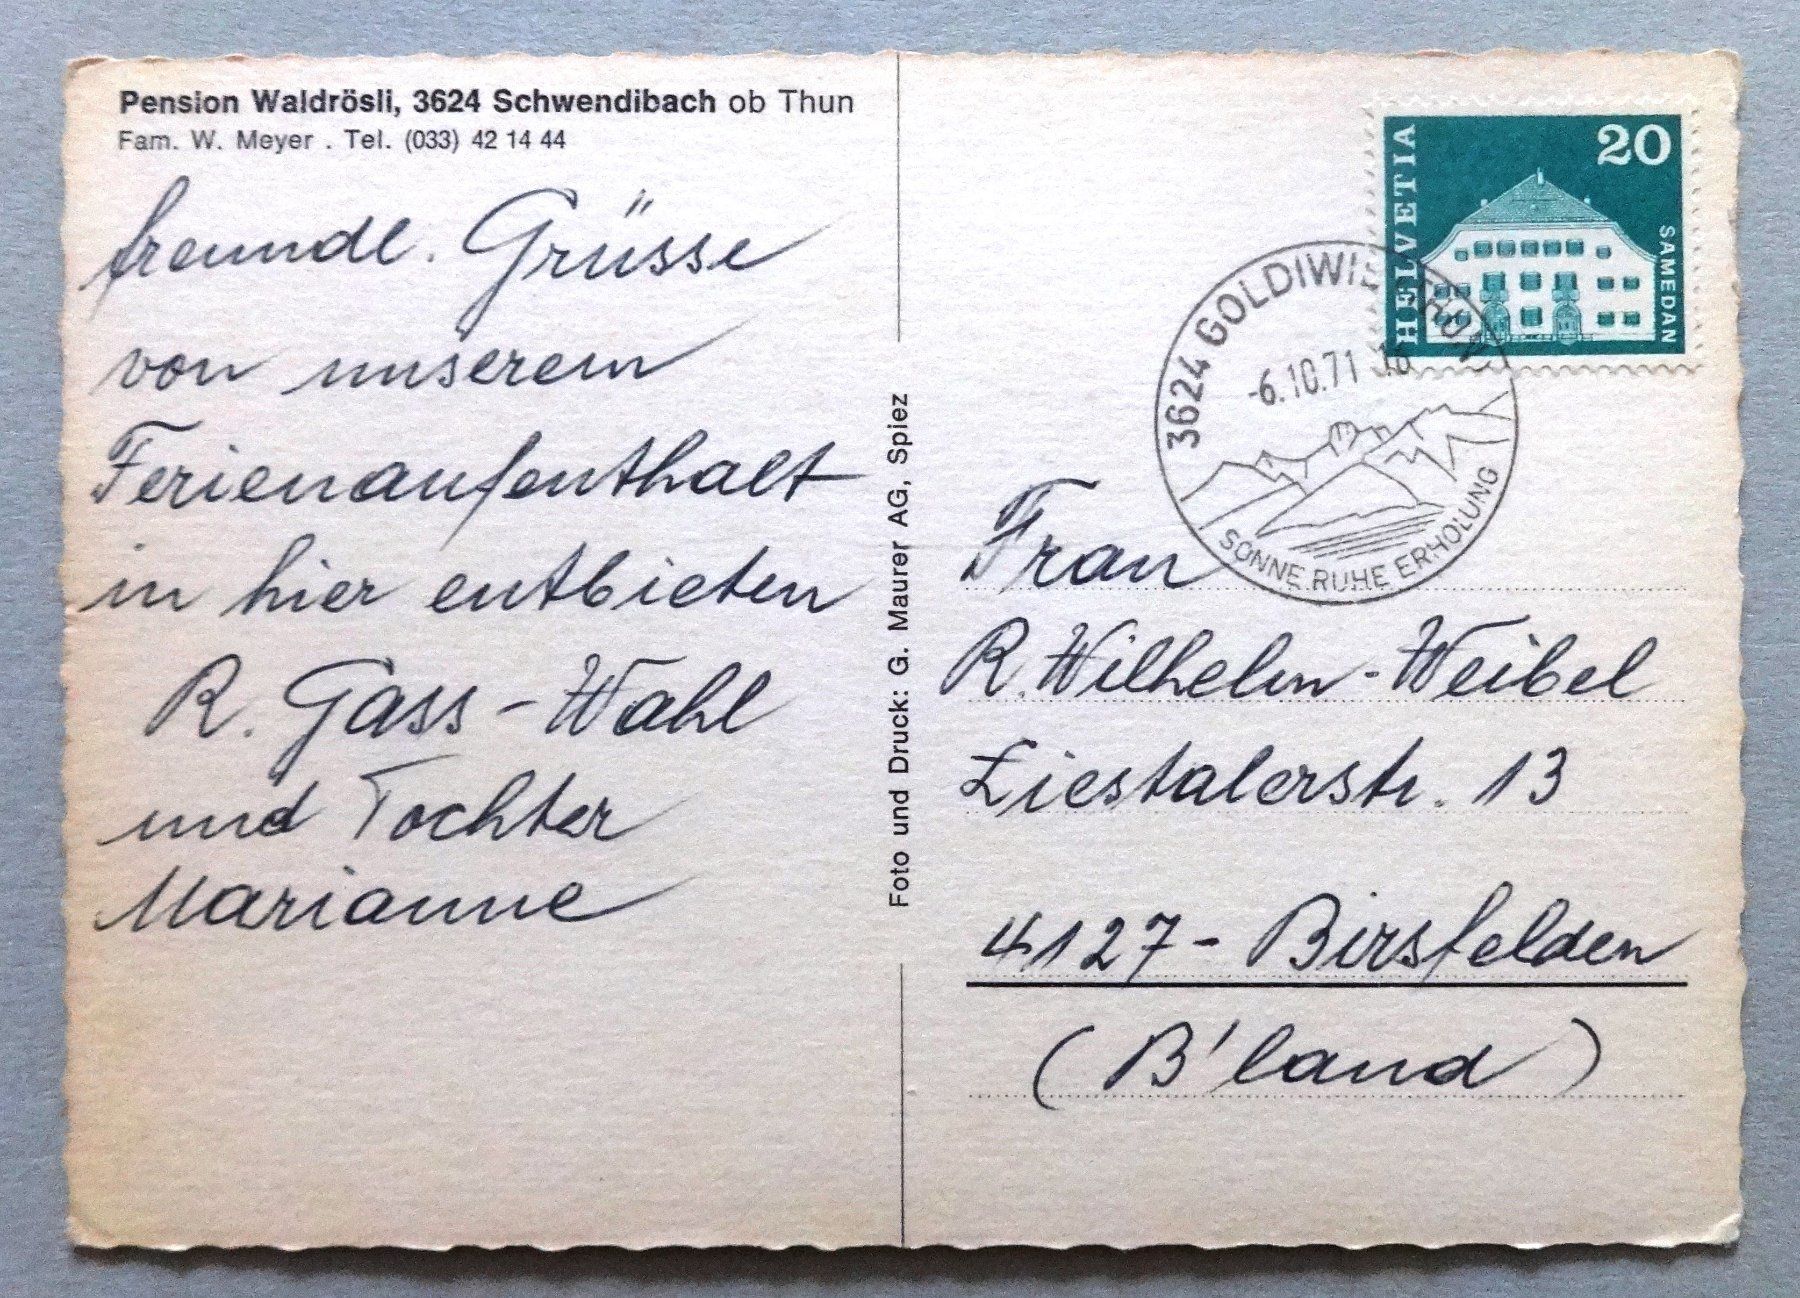 Pension Waldrösli, 3624 Schwendibach ob Thun
Fam. W. Meyer . Tel. (033) 42 14 44
freundl. Grüsse
von unserem
Ferienaufenthalt
in hier entbieten
R. Gass-Wahl
und Tochter
Marianne
Foto und Druck: G. Maurer AG, Spiez
HELVETIA
20
SAMEDAN
3624 GOLDIWIL THUN
-6.10.71 16
SONNE RUHE ERHOLUNG
Frau
R. Wilhelm-Weibel
Liestalerstr. 13
4127- Birsfelden
(B'land)